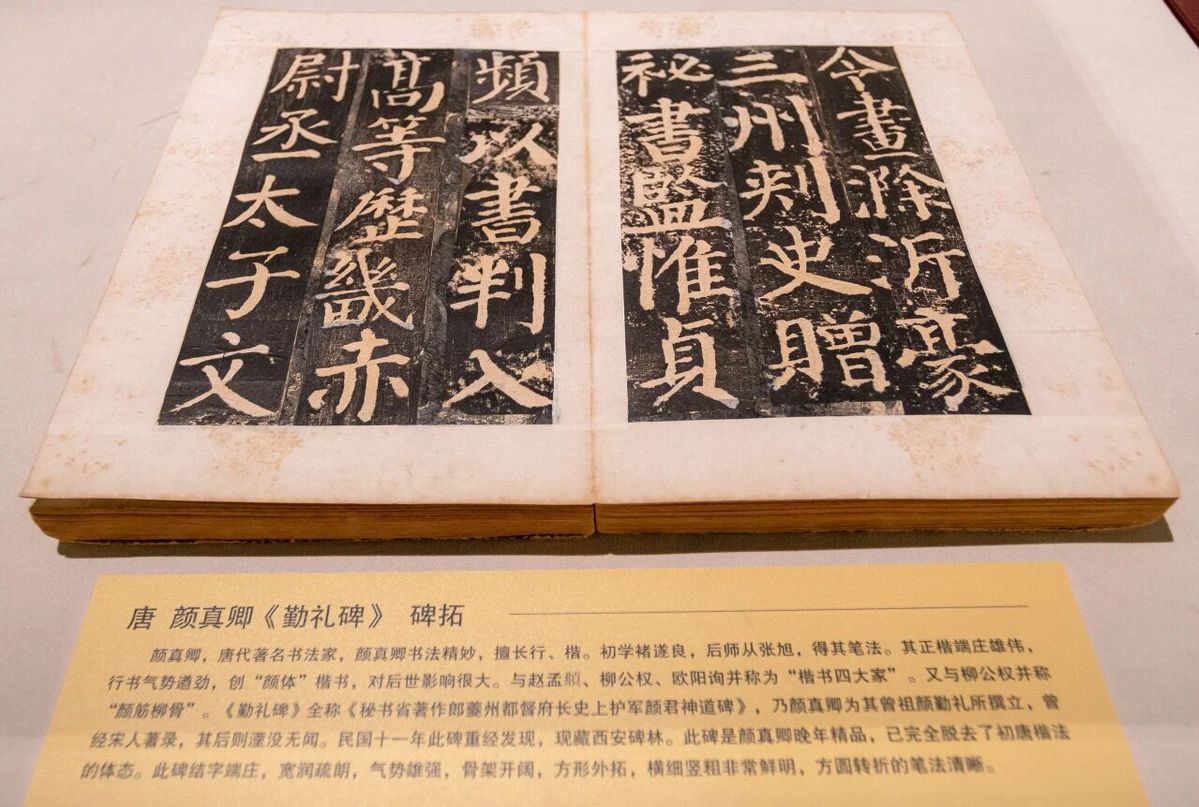 令畫滁沂豪
三州刾史贈
秘書監惟貞
頻以書判入
髙等歷畿赤
尉丞太子文
唐 颜真卿《勤礼碑》 碑拓
颜真卿，唐代著名书法家，颜真卿书法精妙，擅长行、楷。初学褚遂良，后师从张旭，得其笔法。其正楷端庄雄伟，
行书气势遒劲，创“颜体”楷书，对后世影响很大。与赵孟頫、柳公权、欧阳询并称为“楷书四大家”。又与柳公权并称
“颜筋柳骨”。《勤礼碑》全称《秘书省著作郎夔州都督府长史上护军颜君神道碑》，乃颜真卿为其曾祖颜勤礼所撰立，曾
经宋人著录，其后则湮没无闻。民国十一年此碑重经发现，现藏西安碑林。此碑是颜真卿晚年精品，已完全脱去了初唐楷法
的体态。此碑结字端庄，宽润疏朗，气势雄强，骨架开阔，方形外拓，横细竖粗非常鲜明，方圆转折的笔法清晰。